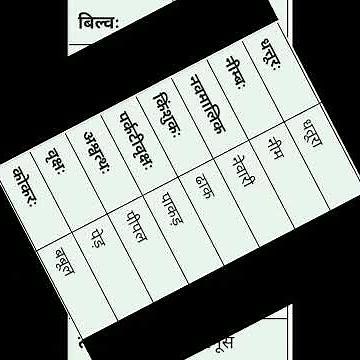 बिल्वः
धत्तूरः धतूरा
नीम्बः नीम
नवमालिक नेवारी
किंशुकः ढाक
पर्कटीवृक्षः पाकड़
अश्वत्थः पीपल
वृक्षः पेड़
कीकरः बबूल